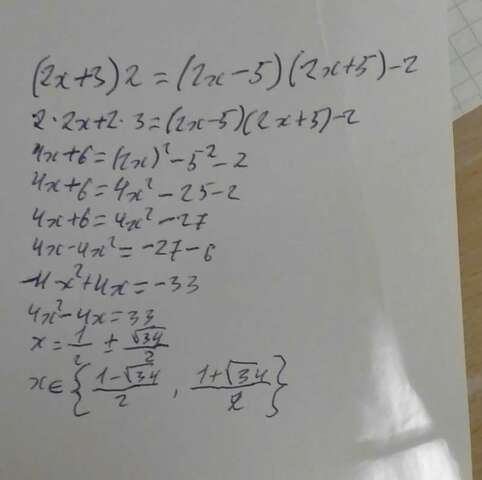 (2x+3)2=(2x-5)(2x+5)-2
2·2x+2·3=(2x-5)(2x+5)-2
4x+6=(2x)²-5²-2
4x+6=4x²-25-2
4x+6=4x²-27
4x-4x²=-27-6
-4x²+4x=-33
4x²-4x=33
x=1/2 ± √34/2
x∈{(1-√34)/2, (1+√34)/2}